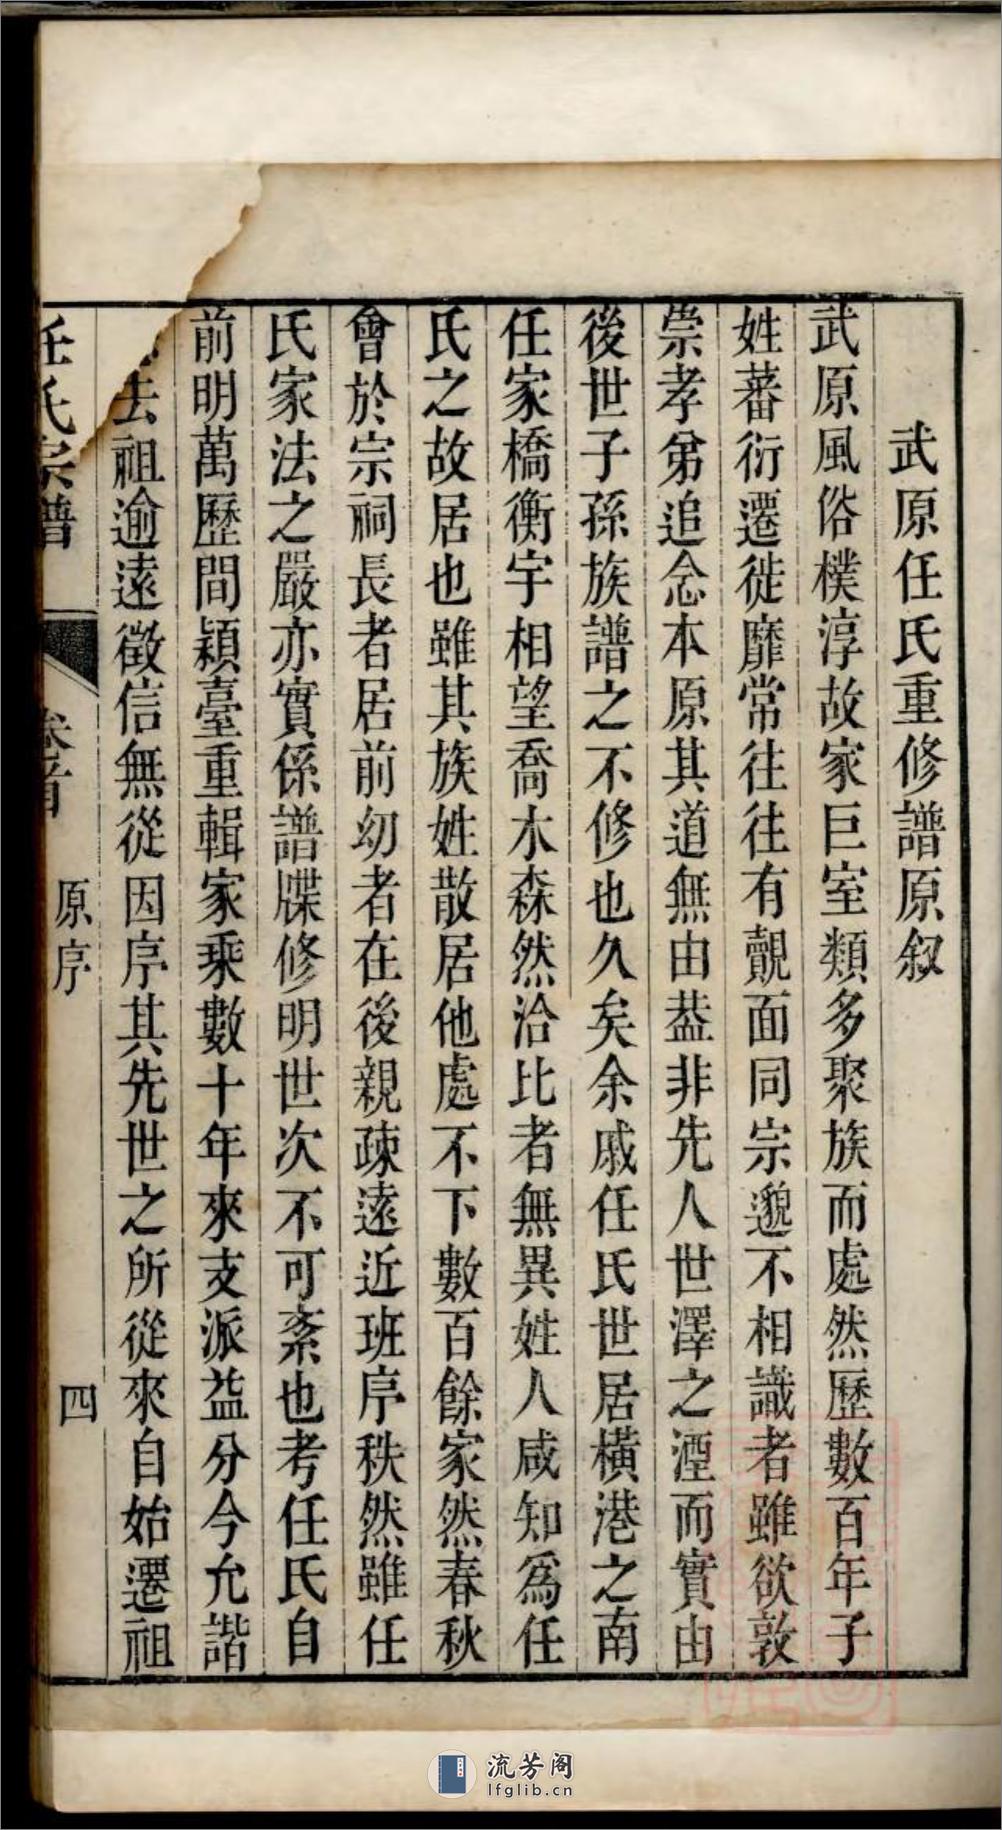 武原任氏重修譜原叙
武原風俗樸淳故家巨室類多聚族而處然歷數百年子
姓蕃衍遷徙靡常往往有覿面同宗邈不相識者雖欲敦
崇孝弟追念本原其道無由葢非先人世澤之湮而實由
後世子孫族譜之不修也久矣余戚任氏世居橫港之南
任家橋衡宇相望喬木森然洽比者無異姓人咸知爲任
氏之故居也雖其族姓散居他處不下數百餘家然春秋
會於宗祠長者居前幼者在後親疎遠近班序秩然雖任
氏家法之嚴亦實係譜牒修明世次不可紊也考任氏自
前明萬歷間潁臺重輯家乘數十年來支派益分今允諧
去祖逾遠徵信無從因序其先世之所從來自始遷祖
任氏宗譜 卷首 原序 四
流芳阁
lfglib.cn